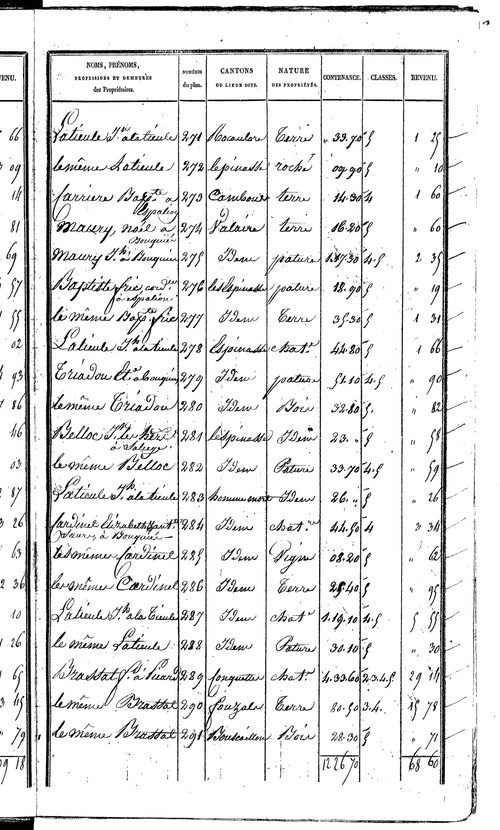 VENU.
NOMS, PRÉNOMS, PROFESSIONS ET DEMEURES des Propriétaires. NUMÉROS du plan. CANTONS OU LIEUX DITS. NATURE DES PROPRIÉTÉS. CONTENANCE. CLASSES. REVENU.
66 Latieule Jn alatieule 271 Terre 33.70 5 1 25
09 le même Latieule 272 lespinasse roche 09.90 5 " 10
14 Carriere Bapte à Espalion 273 Camboux terre 14.30 4 1 60
81 Maury noël à Bouquiés 274 Valaire terre 16.20 5 " 60
69 Maury Jh à Bouquiés 275 Idem pature 1.17.30 4.5 2 35
57 Baptiste fric cordier à espalion 276 lesEspinasse pature 18.90 5 " 19
55 le même Bapte fric 277 Idem Terre 35.30 5 1 31
02 Latieule Jh alatieule 278 lespinasse chatr 44.80 5 1 66
93 Triadou à Bouquiés 279 Idem pature 51.10 4.5 " 90
86 le même Triadou 280 Idem Bois 32.80 5. " 82
46 Belloc Jn 281 lespinasse Idem 23. " 5 " 58
03 le même Belloc 282 Idem Pature 33.70 4.5 " 59
87 Latieule Jh alatieule 283 homme mort Idem 26. " 5 " 26
26 Cardinel Elizabeth à Bouquiés 284 Idem chatr 44.50 4 3 34
63 le même Cardinel 285 Idem Vigne 08.20 5 " 62
36 le même Cardinel 286 Idem Terre 25.40 5 " 95
10 Latieule Jh ala Tieule 287 Idem chatr 1.19.10 4.5 5 55
26 le même Latieule 288 Idem Pature 30.10 5 " 30
65 Brassat 289 chatr 4.33.60 2.3.4.5 29 14
45 le même Brassat 290 fouzals Terre 80.50 3.4. 15 78
79 le même Brassat 291 Bois 28.30 5 " 71
18 12 26 70 68 60